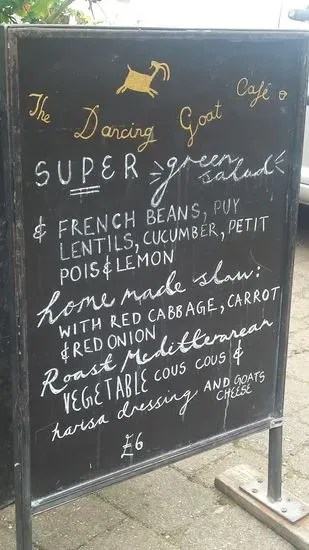 The Dancing Goat Café
SUPER green salad
& FRENCH BEANS, PUY
LENTILS, CUCUMBER, PETIT
POIS & LEMON
home made slaw:
WITH RED CABBAGE, CARROT
& RED ONION
Roast Meditteranean
VEGETABLE COUS COUS &
harisa dressing AND GOATS
CHEESE
£6